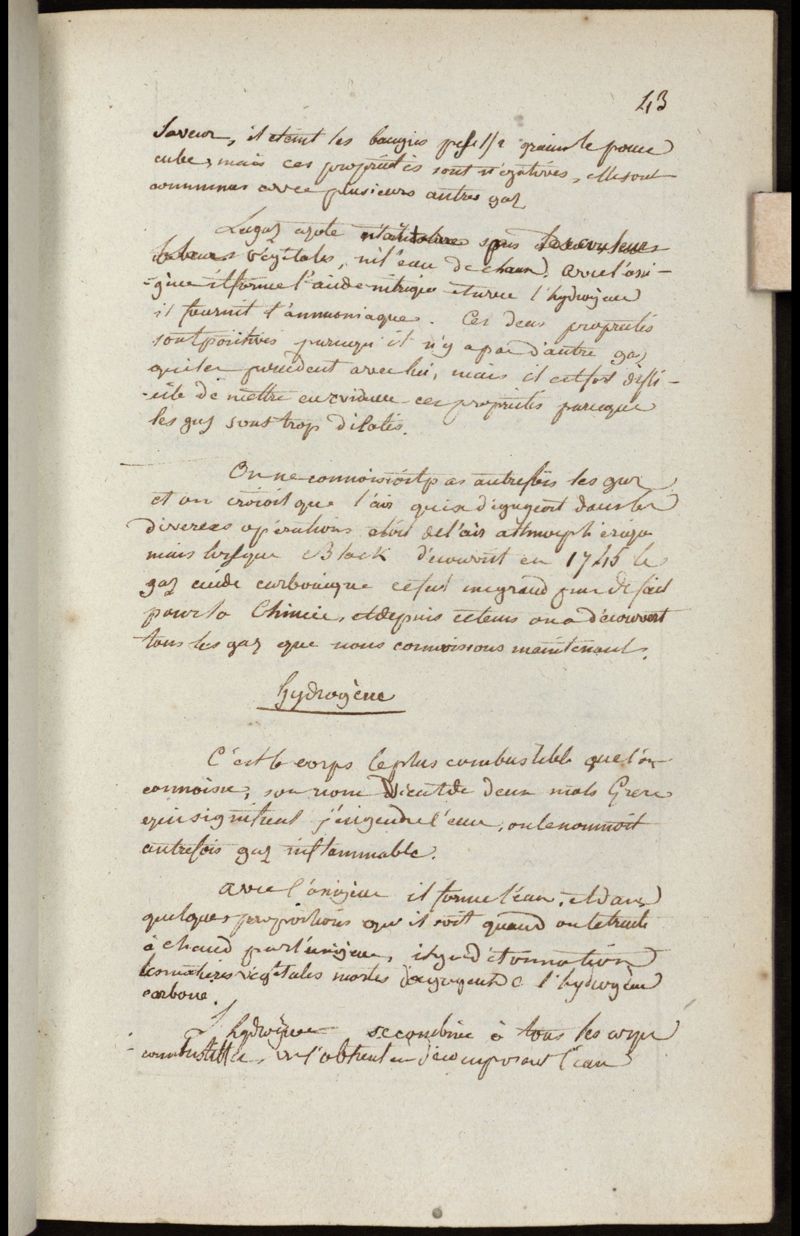 43
Saveur, il eteint les bougies pese 1/2 grain le pouce
cube, mais ces propriétés sont négatives, elle sont
communes avec plusieurs autres gaz
Le gaz azote n'altere pas les couleurs
bleues végétales, ni l'eau de chaux. avec l'oxi-
-gène il forme l'acide nitrique et avec l'hydrogène
il fournit l'ammoniaque. Ces deux propriétés
sont positives parcequ'il n'y a pas d'autre gaz
qui les possedent avec lui, mais il est fort diffi-
-cile de mettre en evidence ces propriétés parceque
les gaz sont trop dilatés.
On ne connoissoit pas autrefois les gaz
et on croioit que l'air qui se degageoit dans les
diverses opérations etoit de l'air athmospherique
mais lorsque Black découvrit en 1745 le
gaz acide carbonique ce fut un grand pas de fait
pour la Chimie, et depuis ce tems on a découvert
tous les gaz que nous connoissons maintenant.
hydrogène
C'est le corps le plus combustible que l'on
connoisse, son nom vient de deux mots Grecs
qui signifient j'engendre l'eau, on le nommoit
autrefois gaz inflammable.
avec l'oxigène il forme l'eau, et dans
quelques proportions que il soit quand on le traite
à chaud par l'oxigène, il y a détonnation
les matières végétales mortes dégagent de l'hydrogène
carboné.
L'hydrogène se combine à tous les corps
combustible, on l'obtient en décomposant l'eau